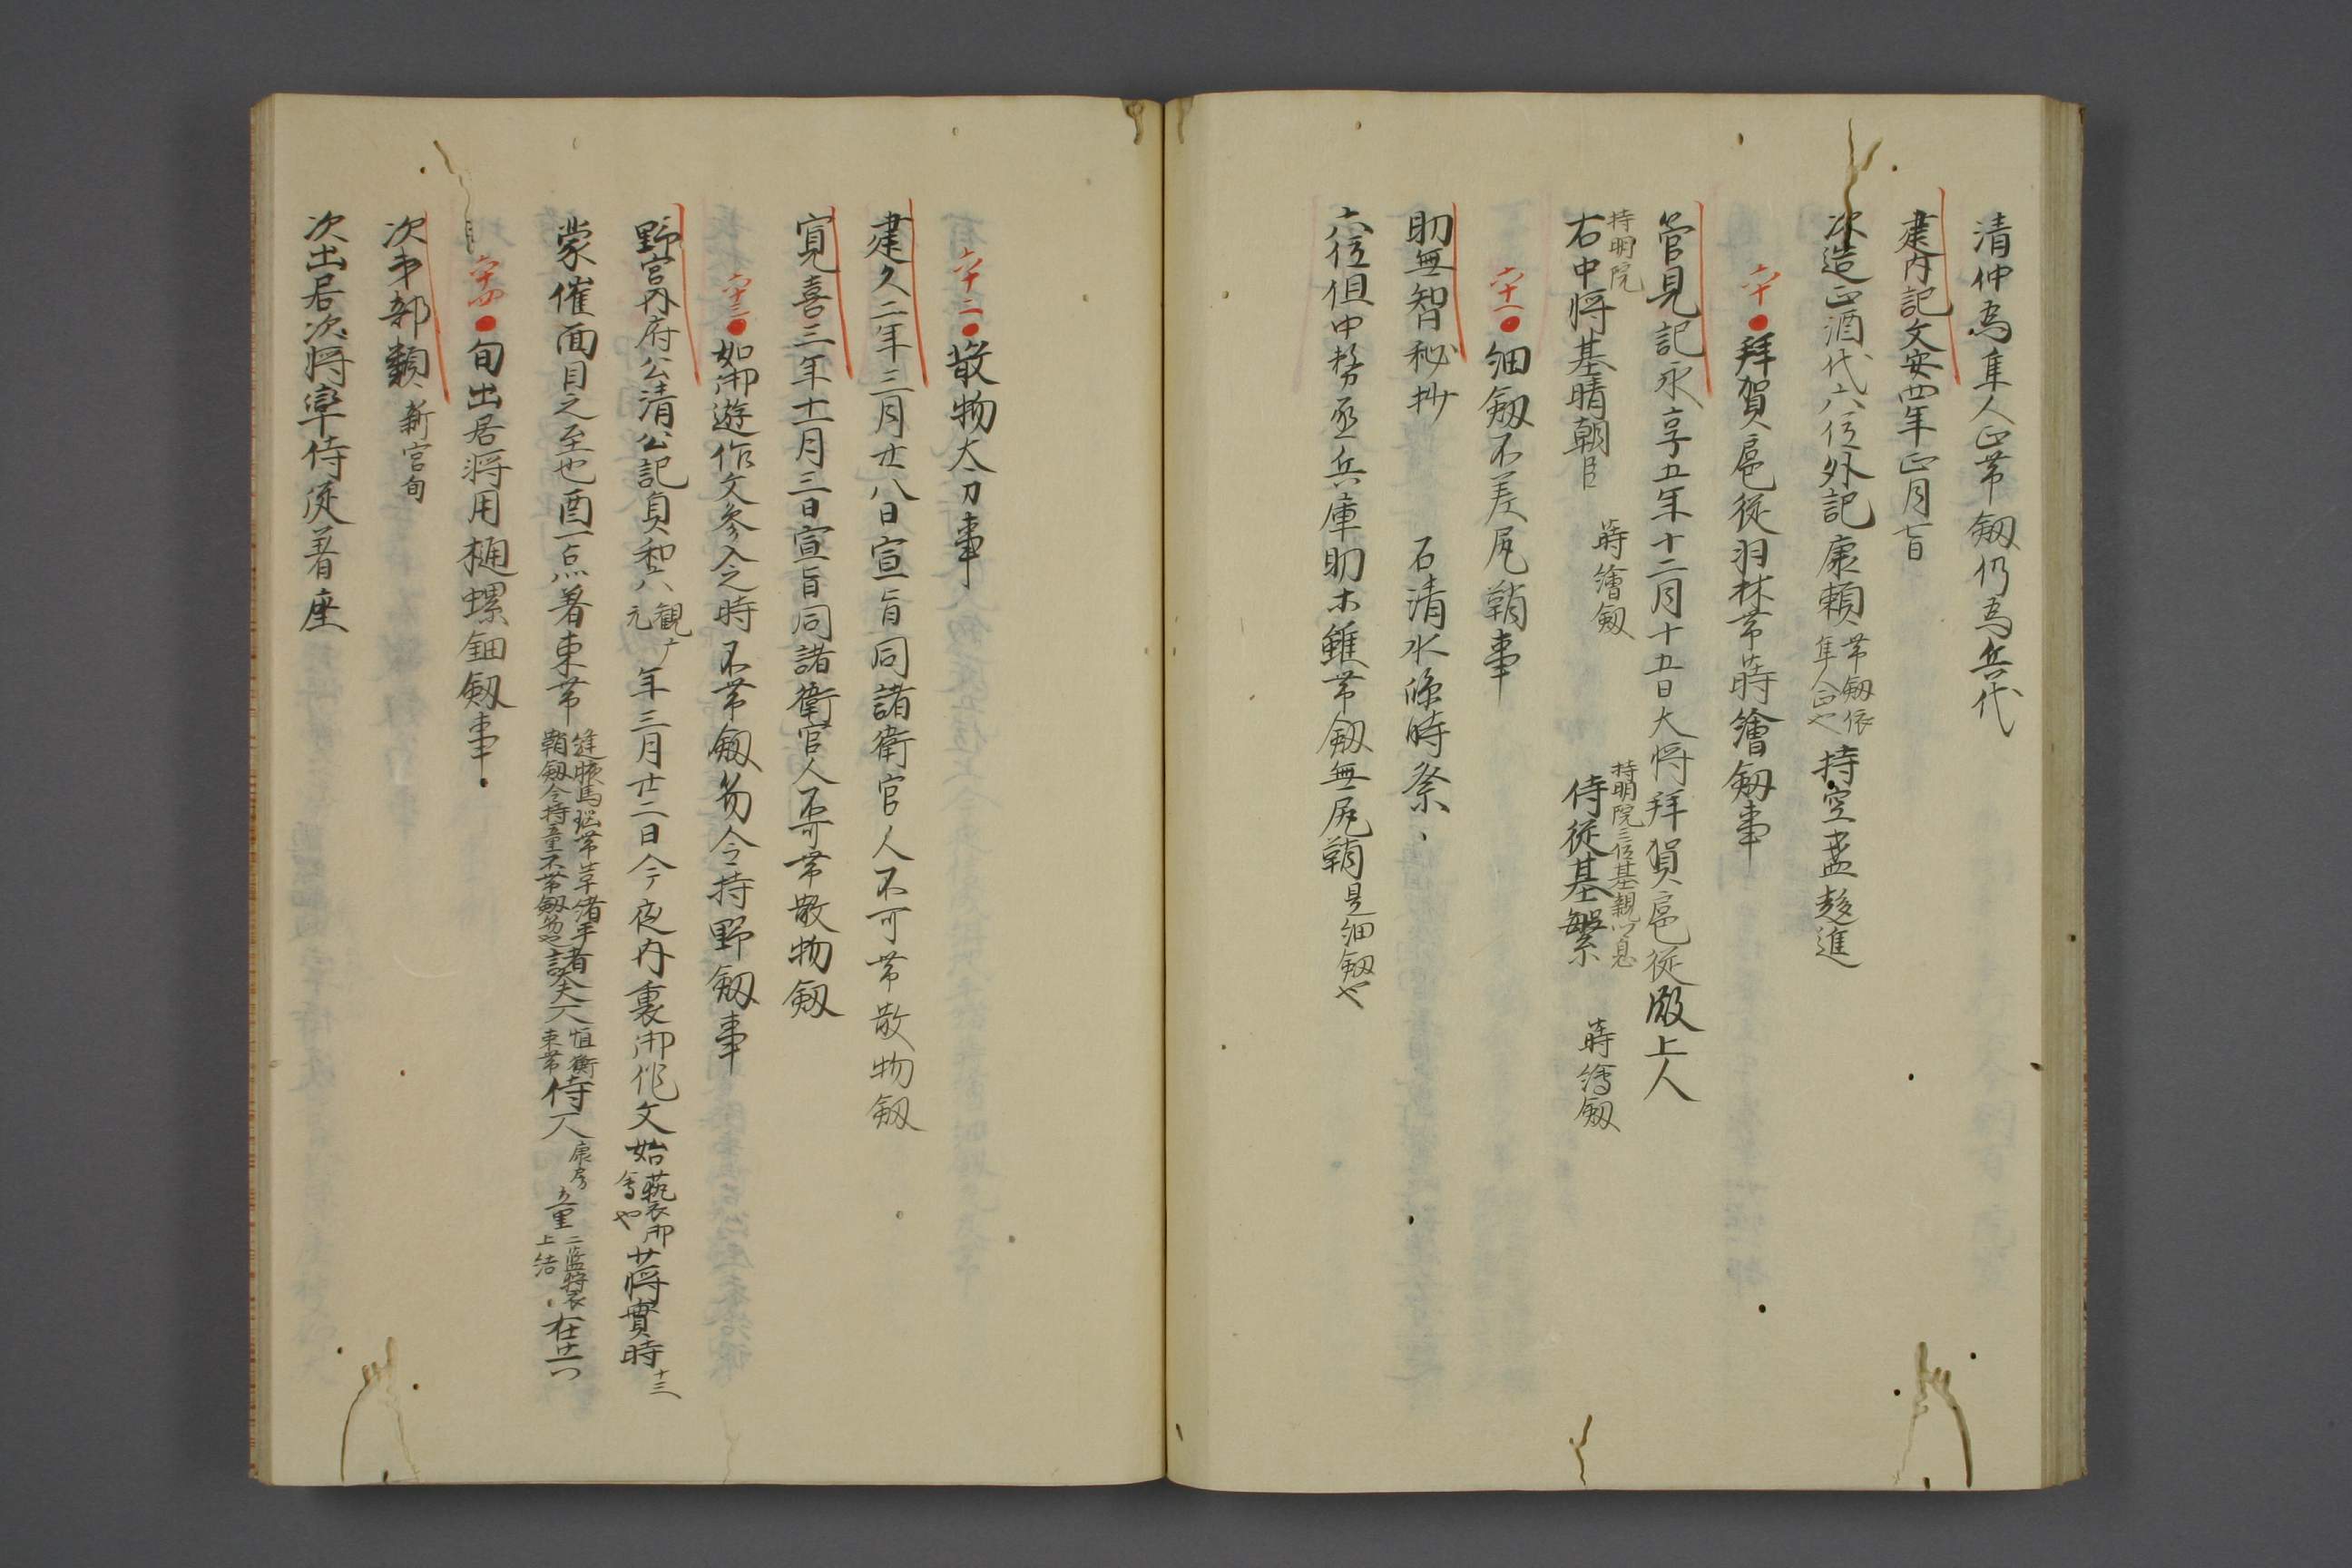 清仲為隼人正帯釼仍為兵代
建内記文安四年正月七日
次造正酒代六位外記康頼帯釼依隼人正也持空盞趍進
六十 拜賀扈従羽林帯蒔繪釼事
管見記永享五年十二月十五日大将拜賀扈従殿上人
持明院
右中将基晴朝臣 蒔繪釼
持明院三位基親卿息
侍従基繁 蒔繪釼
六十一 細釼不差尻鞘事
助無智秘抄 石清水臨時祭、
六位但中務丞兵庫助木雖帯釼無尻鞘是細釼也
六十二 散物太刀事
建久二年三月廿八日宣旨同諸衛官人不可帯散物釼
寛喜三年十一月三日宣旨同諸衛官人不可帯散物釼
六十三 如御遊作文参入之時不帯釼為令持野釼事
野宮内府公清公記貞和六観广元年三月廿二日今夜内裏御作文始藝御會也 少将實時十三
蒙催面目之至也酉一点着束帯縫腋馬瑙帯草緒平鞘釼令持童不帯釼為也諸大夫一人恒衡束帯侍一人康房童二藍狩衣上結、在共
六十四 旬出居将用樋螺鈿釼事
次第部類 新宮旬
次出居次将率侍従著座